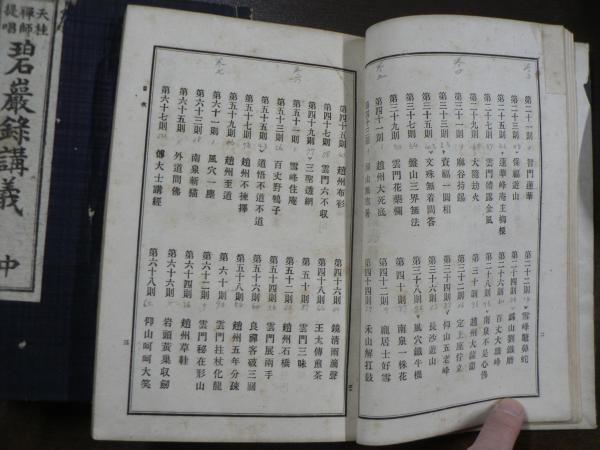 天桂
禪師
提唱
碧巖錄講義
中
第二十一則 智門蓮華
第二十二則 雪峰鼈鼻蛇
第二十三則 保福遊山
第二十四則 潙山劉鐵磨
第二十五則 蓮華峰庵主
第二十六則 百丈大雄峰
第二十七則 雲門體露金風
第二十八則 南泉不是心佛
第二十九則 大隨劫火
第三十則 趙州大蘿蔔
第三十一則 麻谷持錫
第三十二則 定上座佇立
第三十三則 資福一圓相
第三十四則 仰山五老峰
第三十五則 文殊無着問答
第三十六則 長沙遊山
第三十七則 盤山三界無法
第三十八則 風穴鐵牛機
第三十九則 雲門花藥欄
第四十則 南泉一株花
第四十一則 趙州大死底
第四十二則 龐居士好雪
第四十三則
第四十四則 禾山解打鼓
二
第四十五則 趙州布衫
第四十六則 鏡清雨滴聲
第四十七則 雲門六不収
第四十八則 王太傅煎茶
第四十九則 三聖透網
第五十則 雲門三昧
第五十一則 雪峰住庵
第五十二則 趙州石橋
第五十三則 百丈野鴨子
第五十四則 雲門展兩手
第五十五則 道悟不道不道
第五十六則 良禪客破三關
第五十七則 趙州不揀擇
第五十八則 趙州五年分疎
第五十九則 趙州至道
第六十則 雲門拄杖化龍
第六十一則 風穴一塵
第六十二則 雲門秘在形山
第六十三則 南泉斬猫
第六十四則 趙州草鞋
第六十五則 外道問佛
第六十六則 岩頭黃巢収劒
第六十七則 傅大士講經
第六十八則 仰山呵呵大笑
目次
三